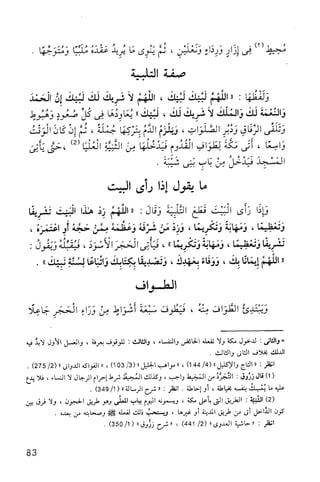 مُحِيطٍ (1) فِى إِزَارٍ وَرِدَاءٍ وَنَعْلَيْنِ ، ثُمَّ يَنْوِى مَا يُرِيدُ عَقْدَهُ مُلَبِّيًا وَمُتَوَجِّهًا .
صفة التلبية
وَلَفْظُهَا : « اللَّهُمَّ لَبَّيْكَ لَبَّيْكَ ، اللَّهُمَّ لاَ شَرِيكَ لَكَ لَبَّيْكَ إِنَّ الْحَمْدَ
وَالنِّعْمَةَ لَكَ وَالمُلْكَ لاَ شَرِيكَ لَكَ ، لَبَّيْكَ » يُعَاوِدُهَا فِى كُلِّ صُعُودٍ وَهُبُوطٍ
وَتَلَقِّى الرِّفَاقِ وَدُبُرِ الصَّلَوَاتِ ، وَيَلْزَمُ الدَّمُ بِتَرْكِهَا جُمْلَةً ، ثُمَّ إِنْ كَانَ الْوَقْتُ
وَاسِعًا ، أَتَى مَكَّةَ لِطَوَافِ الْقُدُومِ فَيَدْخُلُهَا مِنَ الثَّنِيَّةِ الْعُلْيَا (2) ، حَتَّى يَأْتِىَ
الْمَسْجِدَ فَيَدْخُلُ مِنْ بَابِ بَنِى شَيْبَةَ .
ما يقول إذا رأى البيت
وَإِذَا رَأَى الْبَيْتَ قَطَعَ التَّلْبِيَةَ وَقَالَ : « اللَّهُمَّ زِدْ هَذَا الْبَيْتَ تَشْرِيفًا
وَتَعْظِيمًا ، وَمَهَابَةً وَتَكْرِيمًا ، وَزِدْ مَنْ شَرَّفَهُ وَعَظَّمَهُ مِمَّنْ حَجَّهُ أَوِ اعْتَمَرَهُ ،
تَشْرِيفًا وَتَعْظِيمًا ، وَمَهَابَةً وَتَكْرِيمًا » ، فَيَأْتِى الْحَجَرَ الأَسْوَدَ ، فَيُقَبِّلُهُ وَيَقُولُ :
« اللَّهُمَّ إِيمَانًا بِكَ ، وَوَفَاءً بِعَهْدِكَ ، وَتَصْدِيقًا بِكِتَابِكَ وَاتِّبَاعًا لِسُنَّةِ نَبِيِّكَ » .
الطـــواف
وَيَبْتَدِئُ الطَّوَافَ مِنْهُ ، فَيَطُوفُ سَبْعَةَ أَشْوَاطٍ مِنْ وَرَاءِ الْحَجَرِ جَاعِلًا
= والثانى : لدخول مكة ولا تفعله الحائض والنفساء ، والثالث : للوقوف بعرفة ، والغسل الأول لابد فيه
الدلك بخلاف الثانى والثالث .
انظر : « التاج والإكليل » (4/ 144) ، « مواهب الجليل » (3/ 103) ، « الفواكه الدوانى » (2/ 275) .
(1) قال زرُّوق : التَّجَرُّدُ من المَخِيط واجب ، وكذلك المُحِيطُ شرط إحرام الرجال لا النساء ، فلا يدع
عليه ما يُمْسِكُ بنفسه بخياطة ، أو إحاطة . انظر : « شرح الرسالة » (1/ 349) .
(2) الثَّنِيَّة : الطريق التى بأعلى مكة ، ويسمونه اليوم بباب المعلَّى وهو طريق الحجون ، ولا فرق بين
كون الداخل أتى من طريق المدينة أو غيرها ، ويستحبُّ ذلك لفعله ﷺ وصحابته من بعده .
انظر : « حاشية العدوى » (2/ 441) ، « شرح زرُّوق » (1/ 350) .
83